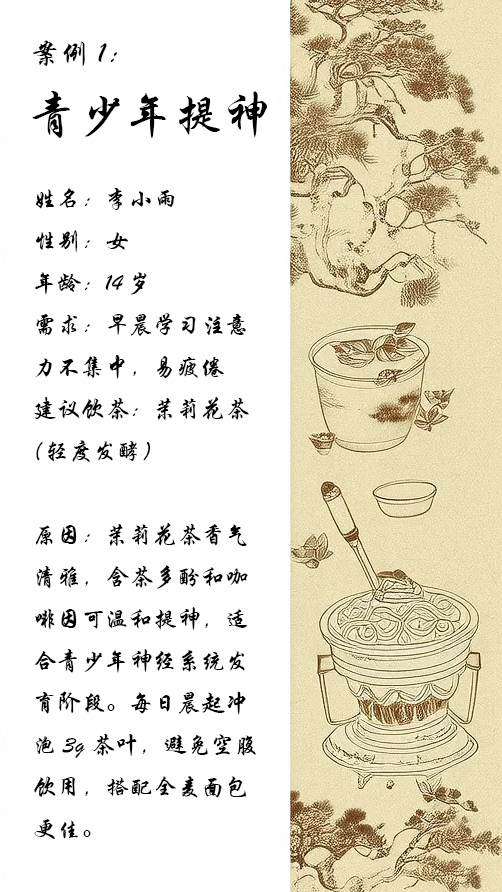 案例 1：
青少年提神
姓名：李小雨
性别：女
年龄：14 岁
需求：早晨学习注意
力不集中，易疲倦
建议饮茶：茉莉花茶
（轻度发酵）
原因：茉莉花茶香气
清雅，含茶多酚和咖
啡因可温和提神，适
合青少年神经系统发
育阶段。每日晨起冲
泡 3g 茶叶，避免空腹
饮用，搭配全麦面包
更佳。